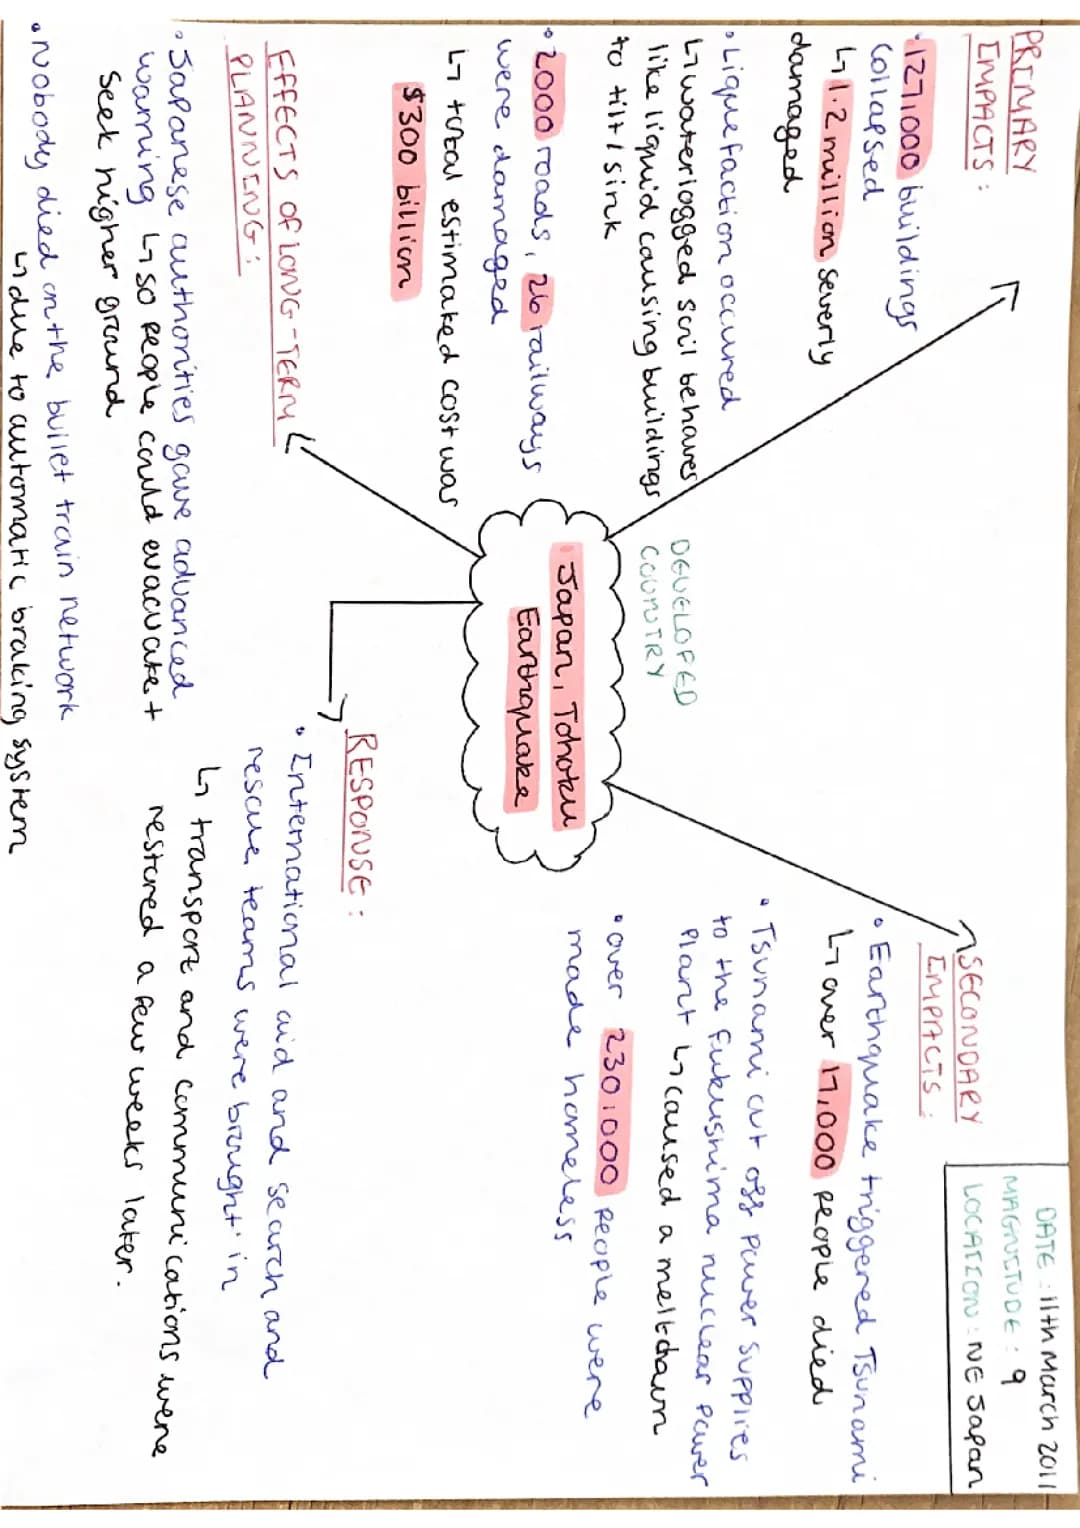 PRIMARY
IMPACTS:
• 127,000 buildings
collapsed
↳ 1.2 million severly
damaged
• Liquefaction occured
↳ waterlogged soil behaves
like liquid causing buildings
to tilt / sink
• 2000 roads, 26 railways
were damaged
↳ total estimated cost was
$300 billion
EFFECTS OF LONG-TERM
PLANNING:
• Japanese authorities gave advanced
warning ↳ so people could evacuate +
seek higher ground
• Nobody died on the bullet train network
↳ due to automatic braking system
DEVELOPED
COUNTRY
• Japan, Tohoku
Earthquake
DATE: 11th March 2011
MAGNITUDE: 9
LOCATION: NE Japan
SECONDARY
IMPACTS:
• Earthquake triggered Tsunami
↳ over 17,000 people died
• Tsunami cut off power supplies
to the Fukushima nuclear power
plant ↳ caused a meltdown
• over 230,000 people were
made homeless
RESPONSE:
• International aid and search and
rescue teams were brought in
↳ transport and communications were
restored a few weeks later.